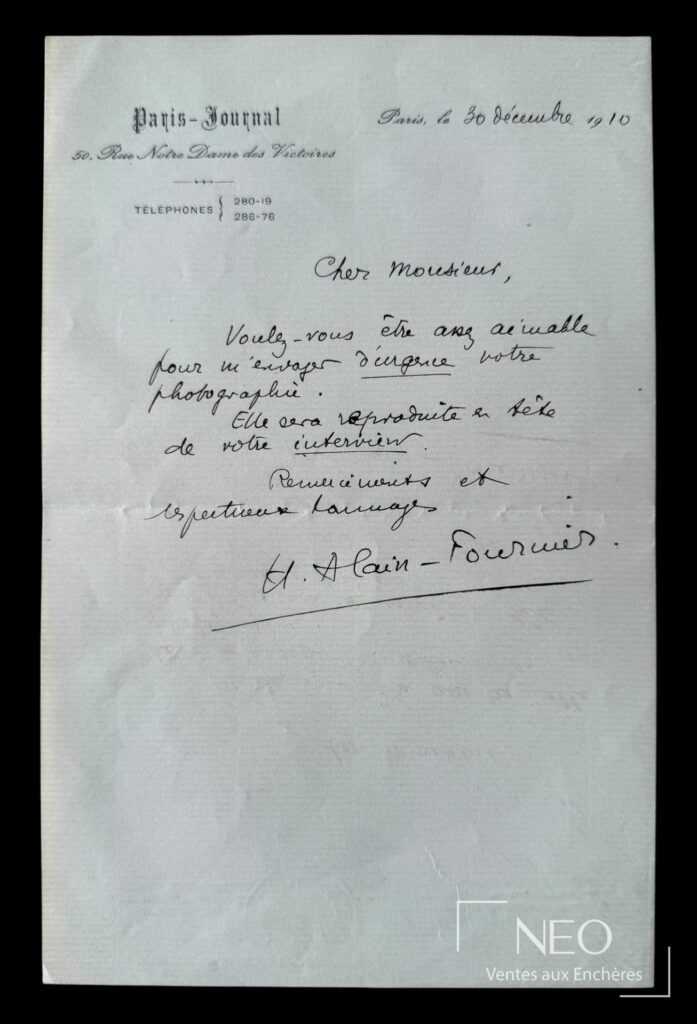 Paris-Journal
Paris, le 30 décembre 1910
50, Rue Notre Dame des Victoires
TÉLÉPHONES { 280-19
286-76
Cher Monsieur,
Voulez-vous être assez aimable
pour m'envoyer d'urgence votre
photographie.
Elle sera reproduite en tête
de votre interview.
Remerciements et
respectueux hommages
H. Alain-Fournier.
NEO
Ventes aux Enchères